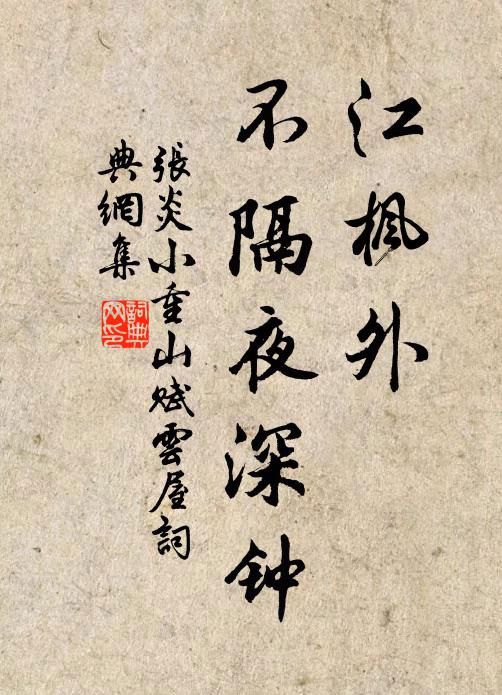 江枫外
不隔夜深钟
張炎小重山赋雲屋詞
典網集
詞典网印